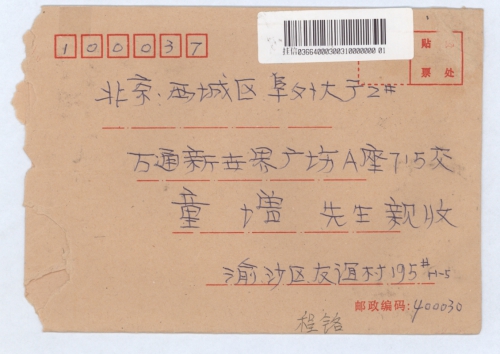 100037
挂信03664000300310000000 01
贴
票 处
北京·西城区阜外大才2#
万通新世界广场A座715交
童增 先生親收
渝沙区友谊村195#4-5
邮政编码:400030
程铭